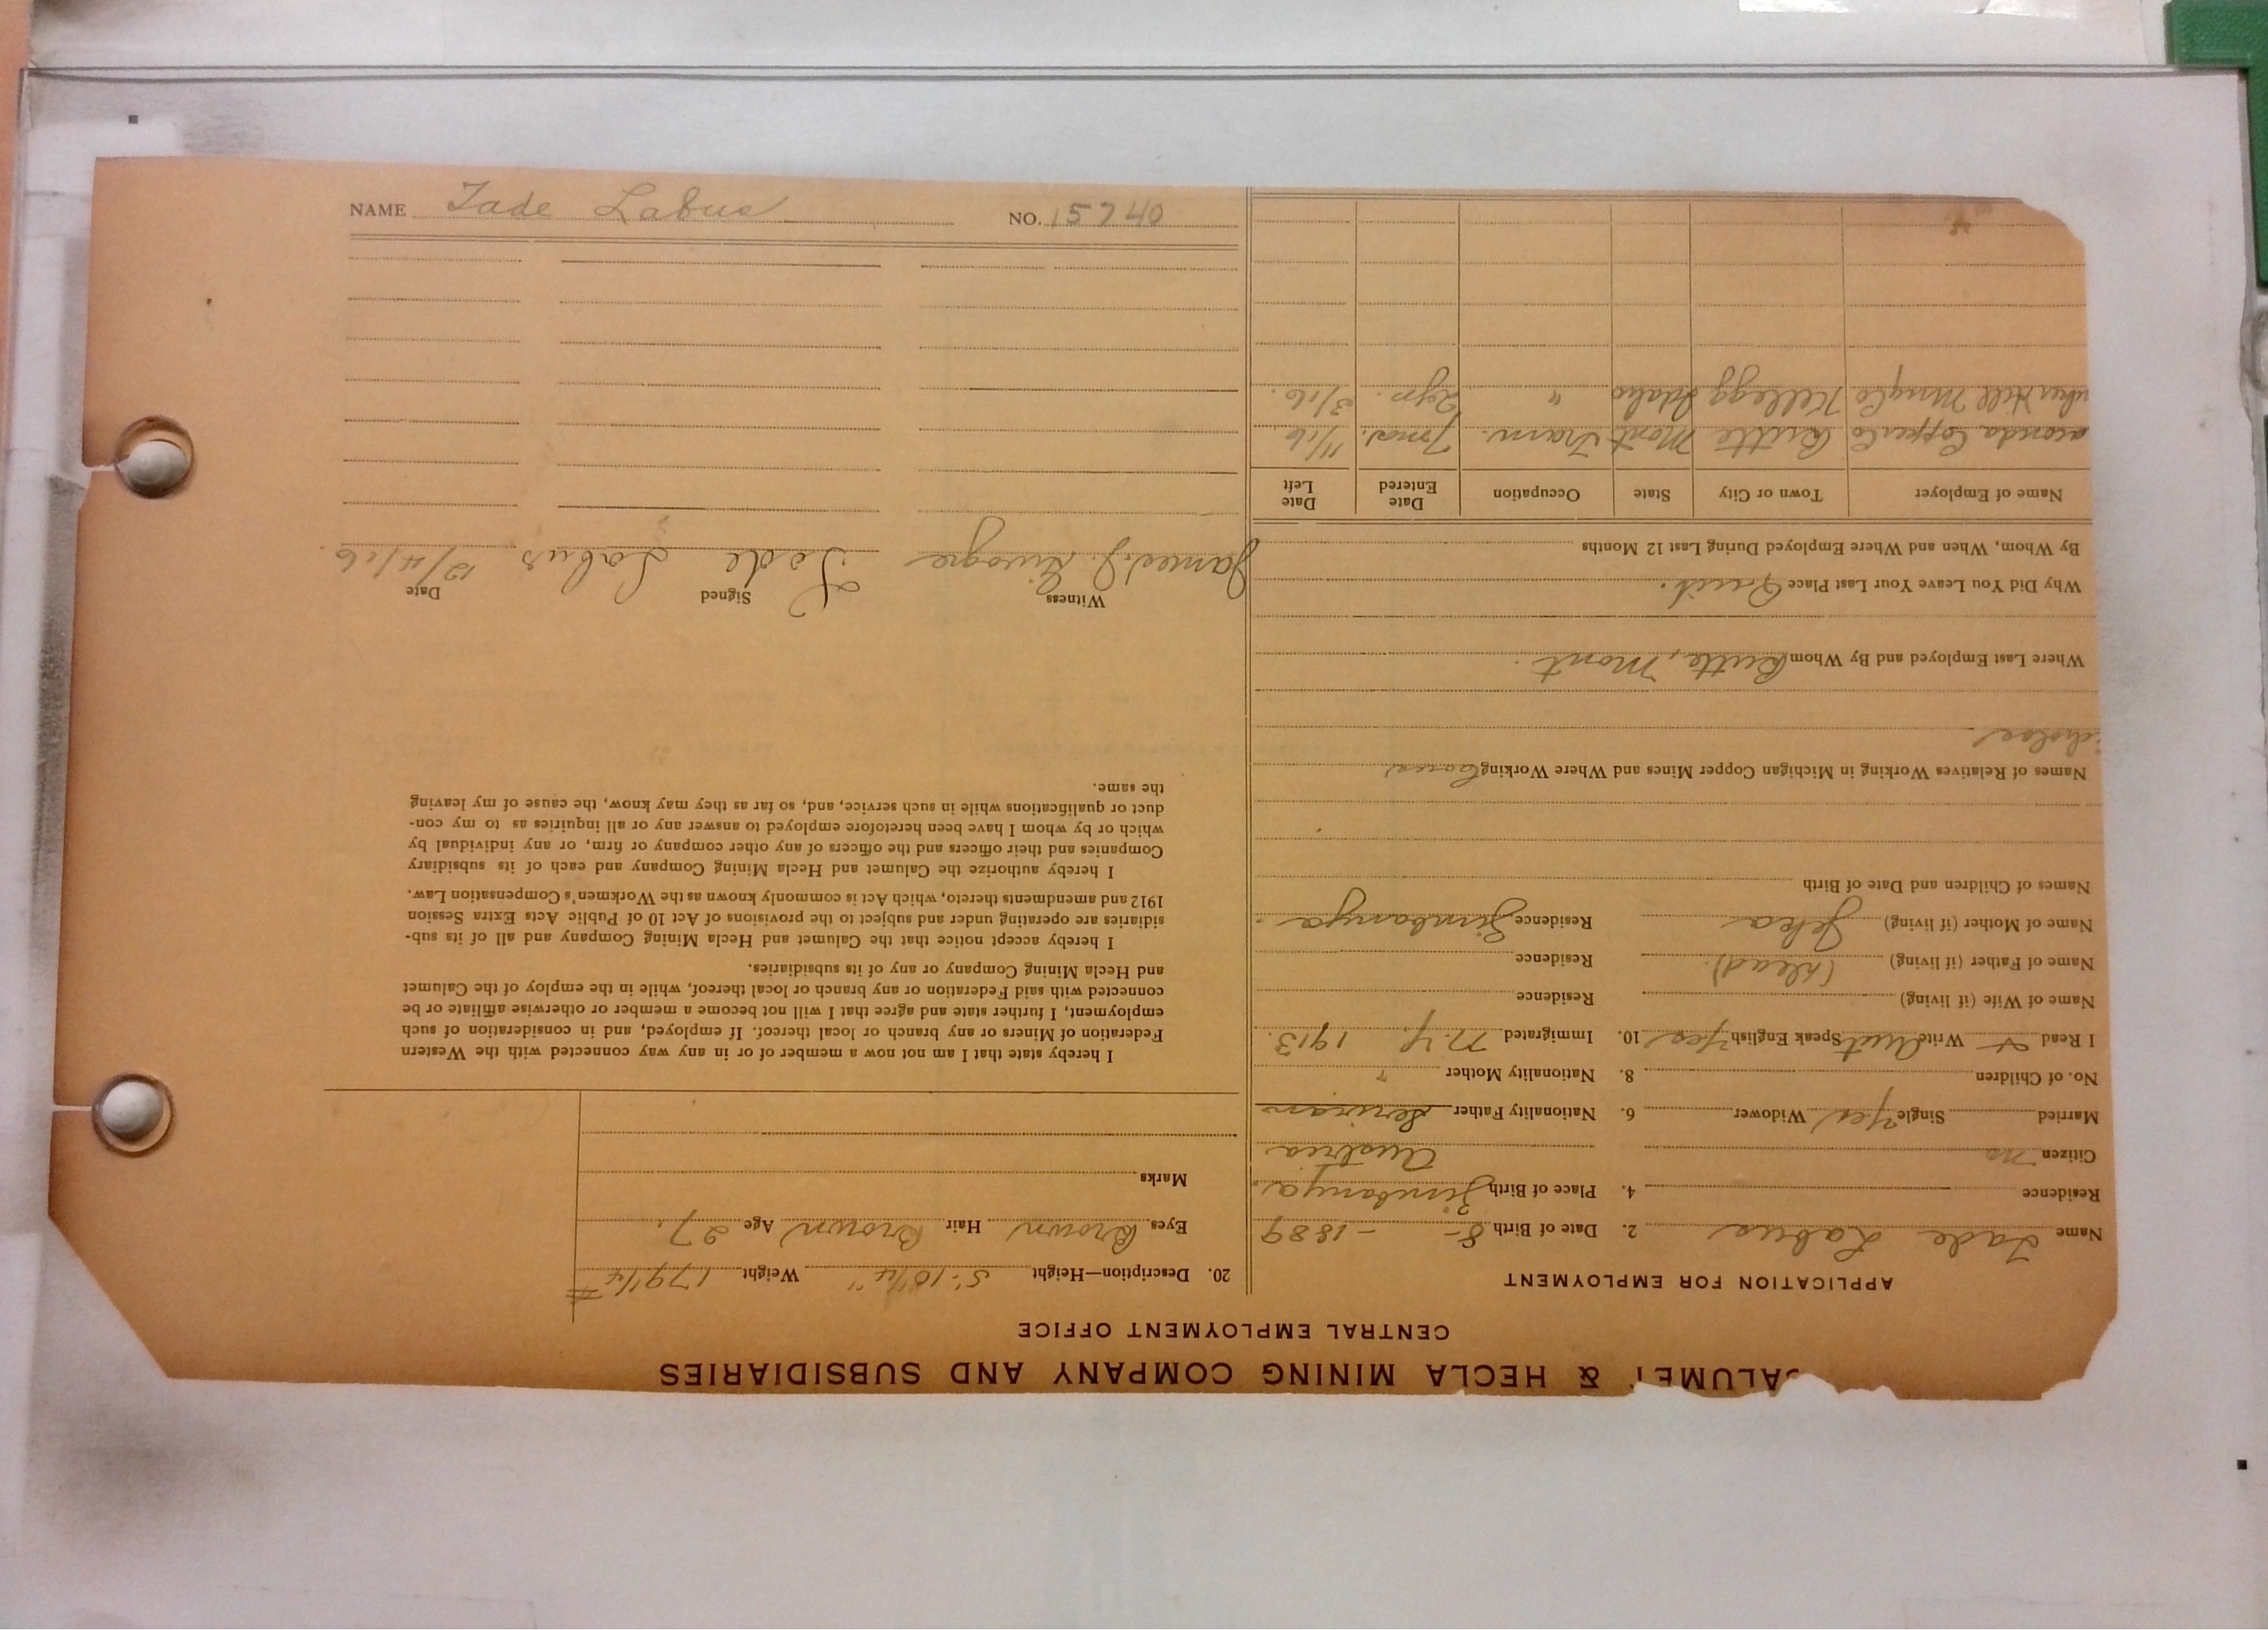 CALUMET & HECLA MINING COMPANY AND SUBSIDIARIES
CENTRAL EMPLOYMENT OFFICE
APPLICATION FOR EMPLOYMENT
Name Tade Labus 2. Date of Birth 8- - 1889
Residence 4. Place of Birth Zimbanya.
Citizen no Austria
Married Single Yes Widower 6. Nationality Father Servian
No. of Children 8. Nationality Mother "
I Read + Write Aust Speak English Yes 10. Immigrated N.Y. 1913.
Name of Wife (if living) Residence
Name of Father (if living) (dead). Residence
Name of Mother (if living) Jeka Residence Zimbanya.
Names of Children and Date of Birth
Names of Relatives Working in Michigan Copper Mines and Where Working
Where Last Employed and By Whom Butte, Mont.
Why Did You Leave Your Last Place Quit.
By Whom, When and Where Employed During Last 12 Months
Name of Employer Town or City State Occupation Date Entered Date Left
aconda Copper Co Butte Mont Tram. 7 mos. 11/16.
nker Hill Mng Co Kellegg Idaho " 2 yr. 3/16.
20. Description—Height 5' 10 1/4" Weight 179 1/4 #
Eyes Brown Hair Brown Age 27.
Marks
I hereby state that I am not now a member of or in any way connected with the Western
Federation of Miners or any branch or local thereof. If employed, and in consideration of such
employment, I further state and agree that I will not become a member or otherwise affiliate or be
connected with said Federation or any branch or local thereof, while in the employ of the Calumet
and Hecla Mining Company or any of its subsidiaries.
I hereby accept notice that the Calumet and Hecla Mining Company and all of its sub-
sidiaries are operating under and subject to the provisions of Act 10 of Public Acts Extra Session
1912 and amendments thereto, which Act is commonly known as the Workmen's Compensation Law.
I hereby authorize the Calumet and Hecla Mining Company and each of its subsidiary
Companies and their officers and the officers of any other company or firm, or any individual by
which or by whom I have been heretofore employed to answer any or all inquiries as to my con-
duct or qualifications while in such service, and, so far as they may know, the cause of my leaving
the same.
Witness Signed Date
James J. Tode Labus 12/4/16.
NAME Tade Labus NO. 15740